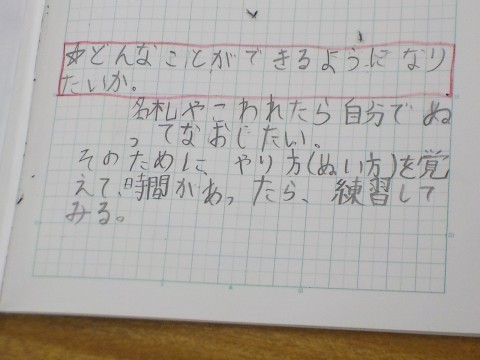 ☆どんなことができるようになり
たいか。
名札やこわれたら自分でぬ
ってなおしたい。
そのために、やり方(ぬい方)を覚
えて、時間があったら、練習して
みる。